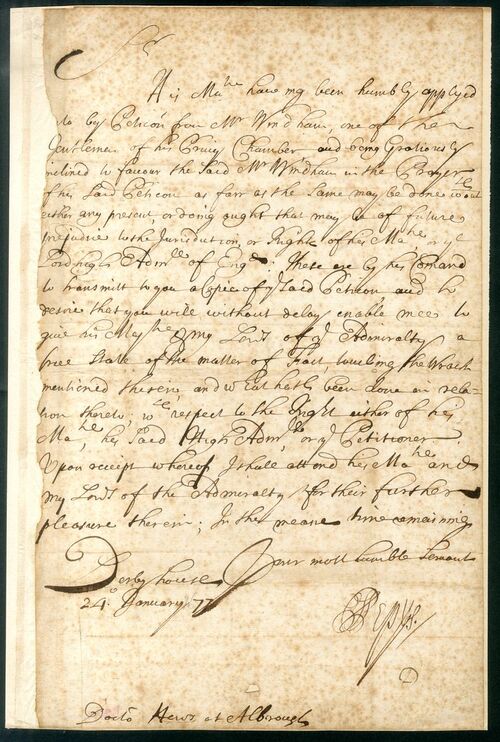 Sr
His Matie haveing been humbly applyed
to by Peticon from Mr Windham, one of the
Gentlemen of his Privey Chamber and being Gratiously
inclined to favour the said Mr Windham in the Prayer
of his Said Peticon as farr as the same may be done wthout
either any present or doing ought that may be of future
prejudice to the Jurisdiction, or Right of his Matie or ye
Lord high Admll of Engd: These are by his Comand
to transmitt to you a Copie of ye said Peticon and to
desire that you will without delay enable mee to
give his Matie & my Lords of ye Admiralty a
true State of the matter of Fact, touching the Wrack
mentioned therein and what hath been done in rela-
tion thereto, wth respect to the Right either of his
Matie, his said High Admll or ye Petitioner
Upon receipt whereof I shall attend his Matie and
my Lords of the Admiralty for their further
pleasure therein; In the meane time remaining
Your most humble Servant
Derby house
24o January 77
SPepys.
Doctor Hews at Alborough